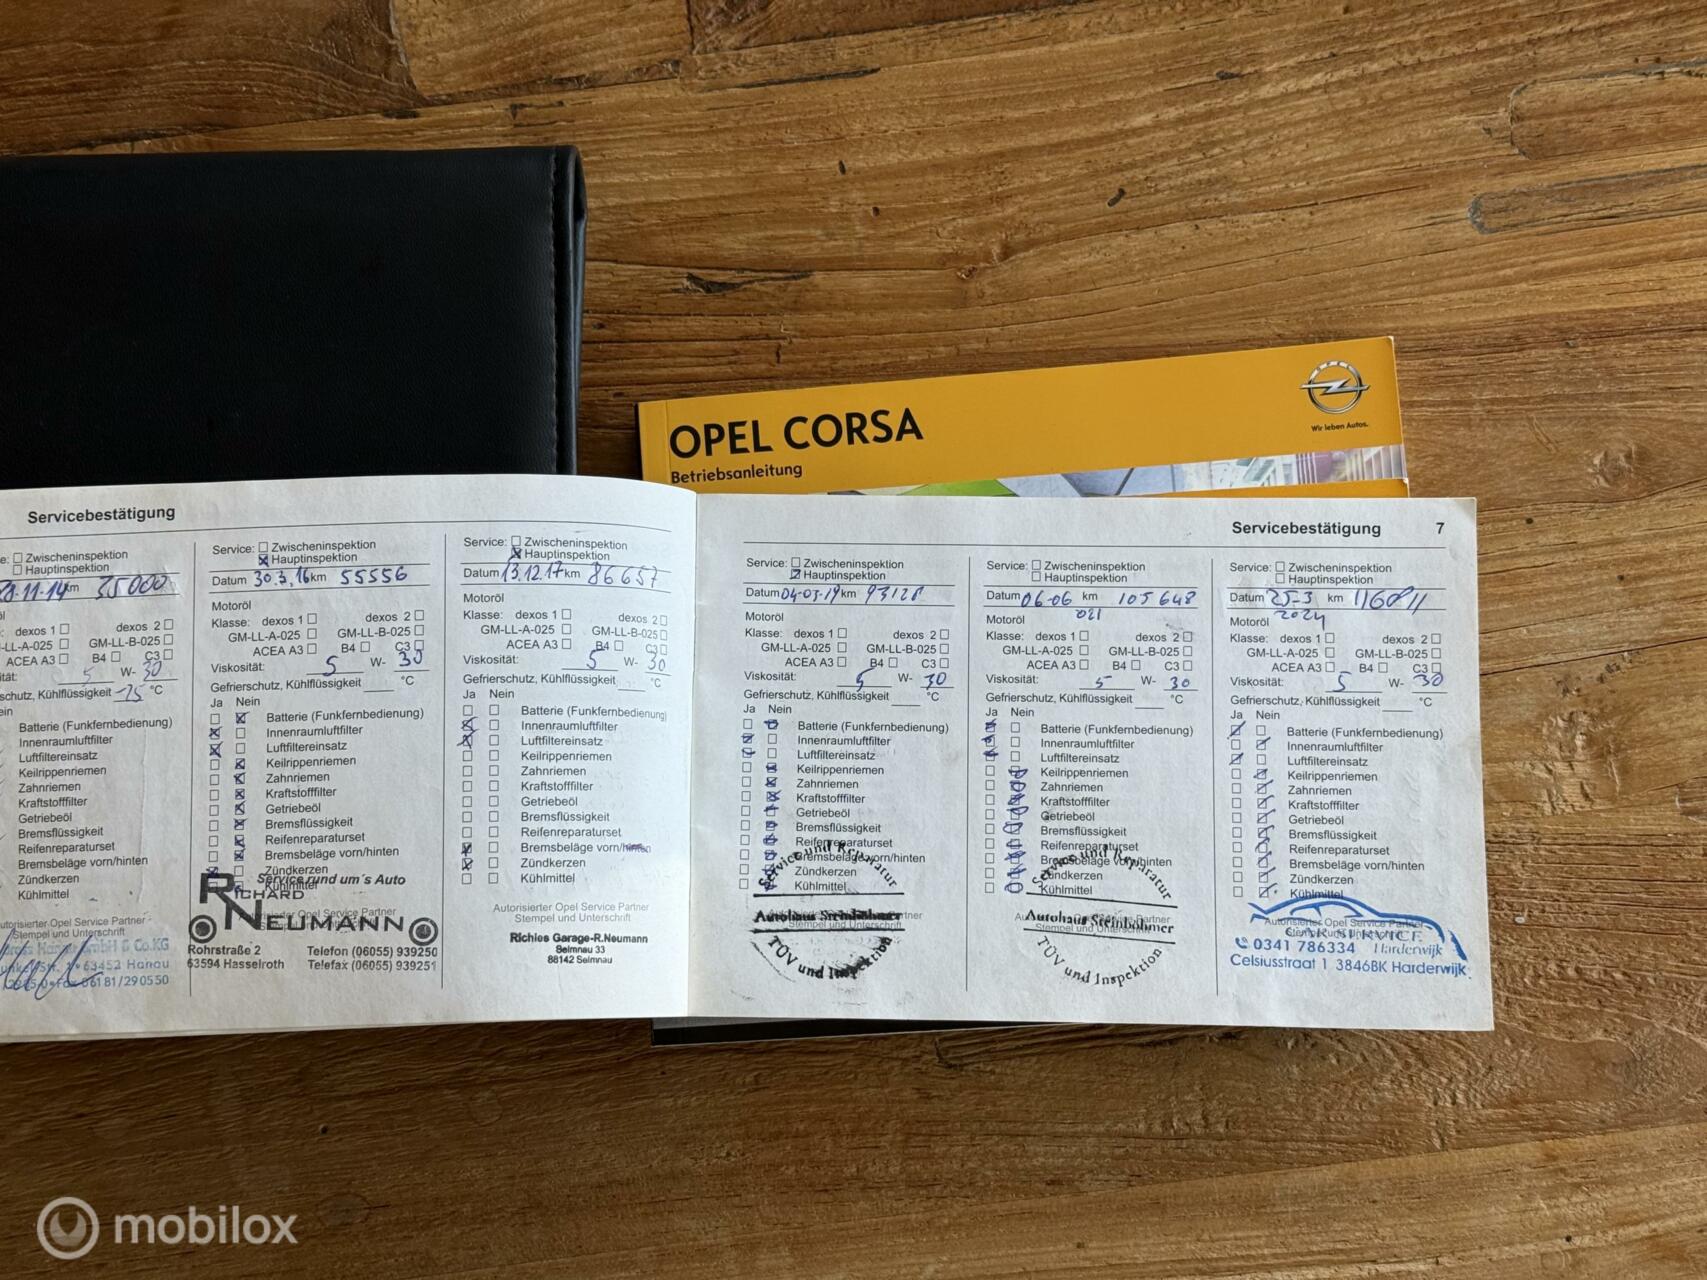 OPEL
Wir leben Autos.
OPEL CORSA
Betriebsanleitung
Servicebestätigung
Zwischeninspektion
Hauptinspektion
28.11.14 km 35000
dexos 1 dexos 2
GM-LL-B-025
ACEA A3 B4 C3
5 W- 30
Kühlflüssigkeit -25 °C
Batterie (Funkfernbedienung)
Innenraumluftfilter
Luftfiltereinsatz
Keilrippenriemen
Zahnriemen
Kraftstofffilter
Getriebeöl
Bremsflüssigkeit
Reifenreparaturset
Bremsbeläge vorn/hinten
Zündkerzen
Kühlmittel
Stempel und Unterschrift
63452 Hanau
Service: Zwischeninspektion
Hauptinspektion
Datum 30.3.16 km 55556
Motoröl
Klasse: dexos 1 dexos 2
GM-LL-A-025 GM-LL-B-025
ACEA A3 B4 C3
Viskosität: 5 W- 30
Gefrierschutz, Kühlflüssigkeit °C
Ja Nein
Batterie (Funkfernbedienung)
Innenraumluftfilter
Luftfiltereinsatz
Keilrippenriemen
Zahnriemen
Kraftstofffilter
Getriebeöl
Bremsflüssigkeit
Reifenreparaturset
Bremsbeläge vorn/hinten
Zündkerzen
Kühlmittel
Service rund um´s Auto
RICHARD
NEUMANN
Autorisierter Opel Service Partner
Rohrstraße 2 Telefon (06055) 939250
63594 Hasselroth Telefax (06055) 939251
Service: Zwischeninspektion
Hauptinspektion
Datum 13.12.17 km 86657
Motoröl
Klasse: dexos 1 dexos 2
GM-LL-A-025 GM-LL-B-025
ACEA A3 B4 C3
Viskosität: 5 W- 30
Gefrierschutz, Kühlflüssigkeit °C
Ja Nein
Batterie (Funkfernbedienung)
Innenraumluftfilter
Luftfiltereinsatz
Keilrippenriemen
Zahnriemen
Kraftstofffilter
Getriebeöl
Bremsflüssigkeit
Reifenreparaturset
Bremsbeläge vorn/hinten
Zündkerzen
Kühlmittel
Autorisierter Opel Service Partner
Stempel und Unterschrift
Richies Garage-R.Neumann
Selmnau 33
88142 Selmnau
Servicebestätigung 7
Service: Zwischeninspektion
Hauptinspektion
Datum 04-03-19 km 93128
Motoröl
Klasse: dexos 1 dexos 2
GM-LL-A-025 GM-LL-B-025
ACEA A3 B4 C3
Viskosität: 5 W- 30
Gefrierschutz, Kühlflüssigkeit °C
Ja Nein
Batterie (Funkfernbedienung)
Innenraumluftfilter
Luftfiltereinsatz
Keilrippenriemen
Zahnriemen
Kraftstofffilter
Getriebeöl
Bremsflüssigkeit
Reifenreparaturset
Bremsbeläge vorn/hinten
Zündkerzen
Kühlmittel
Service und Reparatur
Autohaus Steinböhmer
Stempel und Unterschrift
TÜV und Inspektion
Service: Zwischeninspektion
Hauptinspektion
Datum 06-06 km 105648
021
Motoröl
Klasse: dexos 1 dexos 2
GM-LL-A-025 GM-LL-B-025
ACEA A3 B4 C3
Viskosität: 5 W- 30
Gefrierschutz, Kühlflüssigkeit °C
Ja Nein
Batterie (Funkfernbedienung)
Innenraumluftfilter
Luftfiltereinsatz
Keilrippenriemen
Zahnriemen
Kraftstofffilter
Getriebeöl
Bremsflüssigkeit
Reifenreparaturset
Bremsbeläge vorn/hinten
Zündkerzen
Kühlmittel
Service und Reparatur
Autohaus Steinböhmer
Stempel und Unterschrift
TÜV und Inspektion
Service: Zwischeninspektion
Hauptinspektion
Datum 25-3 km 116811
2024
Motoröl
Klasse: dexos 1 dexos 2
GM-LL-A-025 GM-LL-B-025
ACEA A3 B4 C3
Viskosität: 5 W- 30
Gefrierschutz, Kühlflüssigkeit °C
Ja Nein
Batterie (Funkfernbedienung)
Innenraumluftfilter
Luftfiltereinsatz
Keilrippenriemen
Zahnriemen
Kraftstofffilter
Getriebeöl
Bremsflüssigkeit
Reifenreparaturset
Bremsbeläge vorn/hinten
Zündkerzen
Kühlmittel
Autorisierter Opel Service Partner
Stempel und Unterschrift
CAR SERVICE
0341 786334 Harderwijk
Celsiusstraat 1 3846BK Harderwijk
mobilox